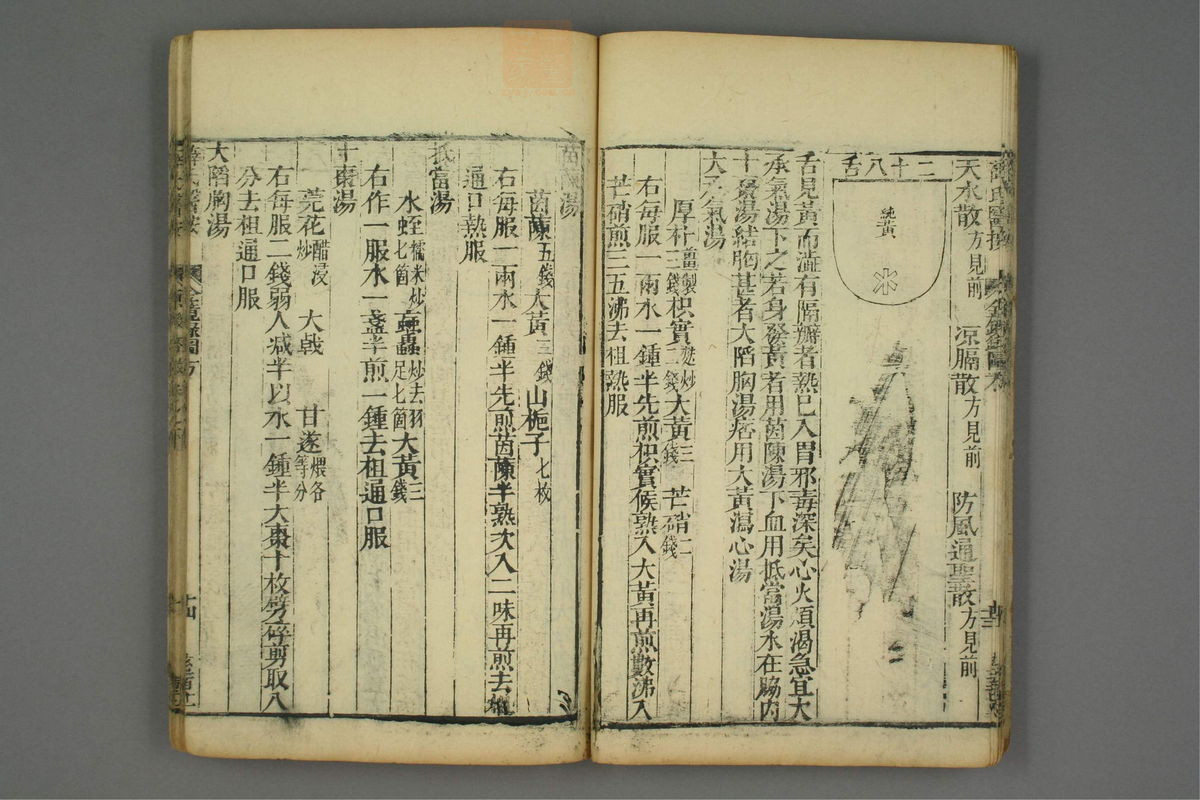 天水散方見前 凉膈散方見前 防風通聖散方見前
二十八舌
純黃
舌見黃而澁有隔瓣者熱已入胃邪毒深矣心火煩渴急宜大
承氣湯下之若身發黃者用茵陳湯下血用抵當湯水在脇內
十棗湯結胸甚者大陷胸湯痞用大黃瀉心湯
大承氣湯
厚朴薑製三錢 枳實麩炒二錢 大黃三錢 芒硝二錢
右每服一兩水一鍾半先煎枳實候熟入大黃再煎數沸入
芒硝煎三五沸去柤熟服
茵陳湯
茵蔯五錢 大黃三錢 山梔子七枚
右每服一兩水一鍾半先煎茵蔯半熟次入二味再煎去柤
通口熱服
抵當湯
水蛭七箇糯米炒 蝱蟲炒去羽足七箇 大黃三錢
右作一服水一盞半煎一鍾去柤通口服
十棗湯
莞花醋浸炒 大戟 甘遂煨各等分
右每服二錢弱人減半以水一鍾半大棗十枚劈碎剪取八
分去柤通口服
大陷胸湯